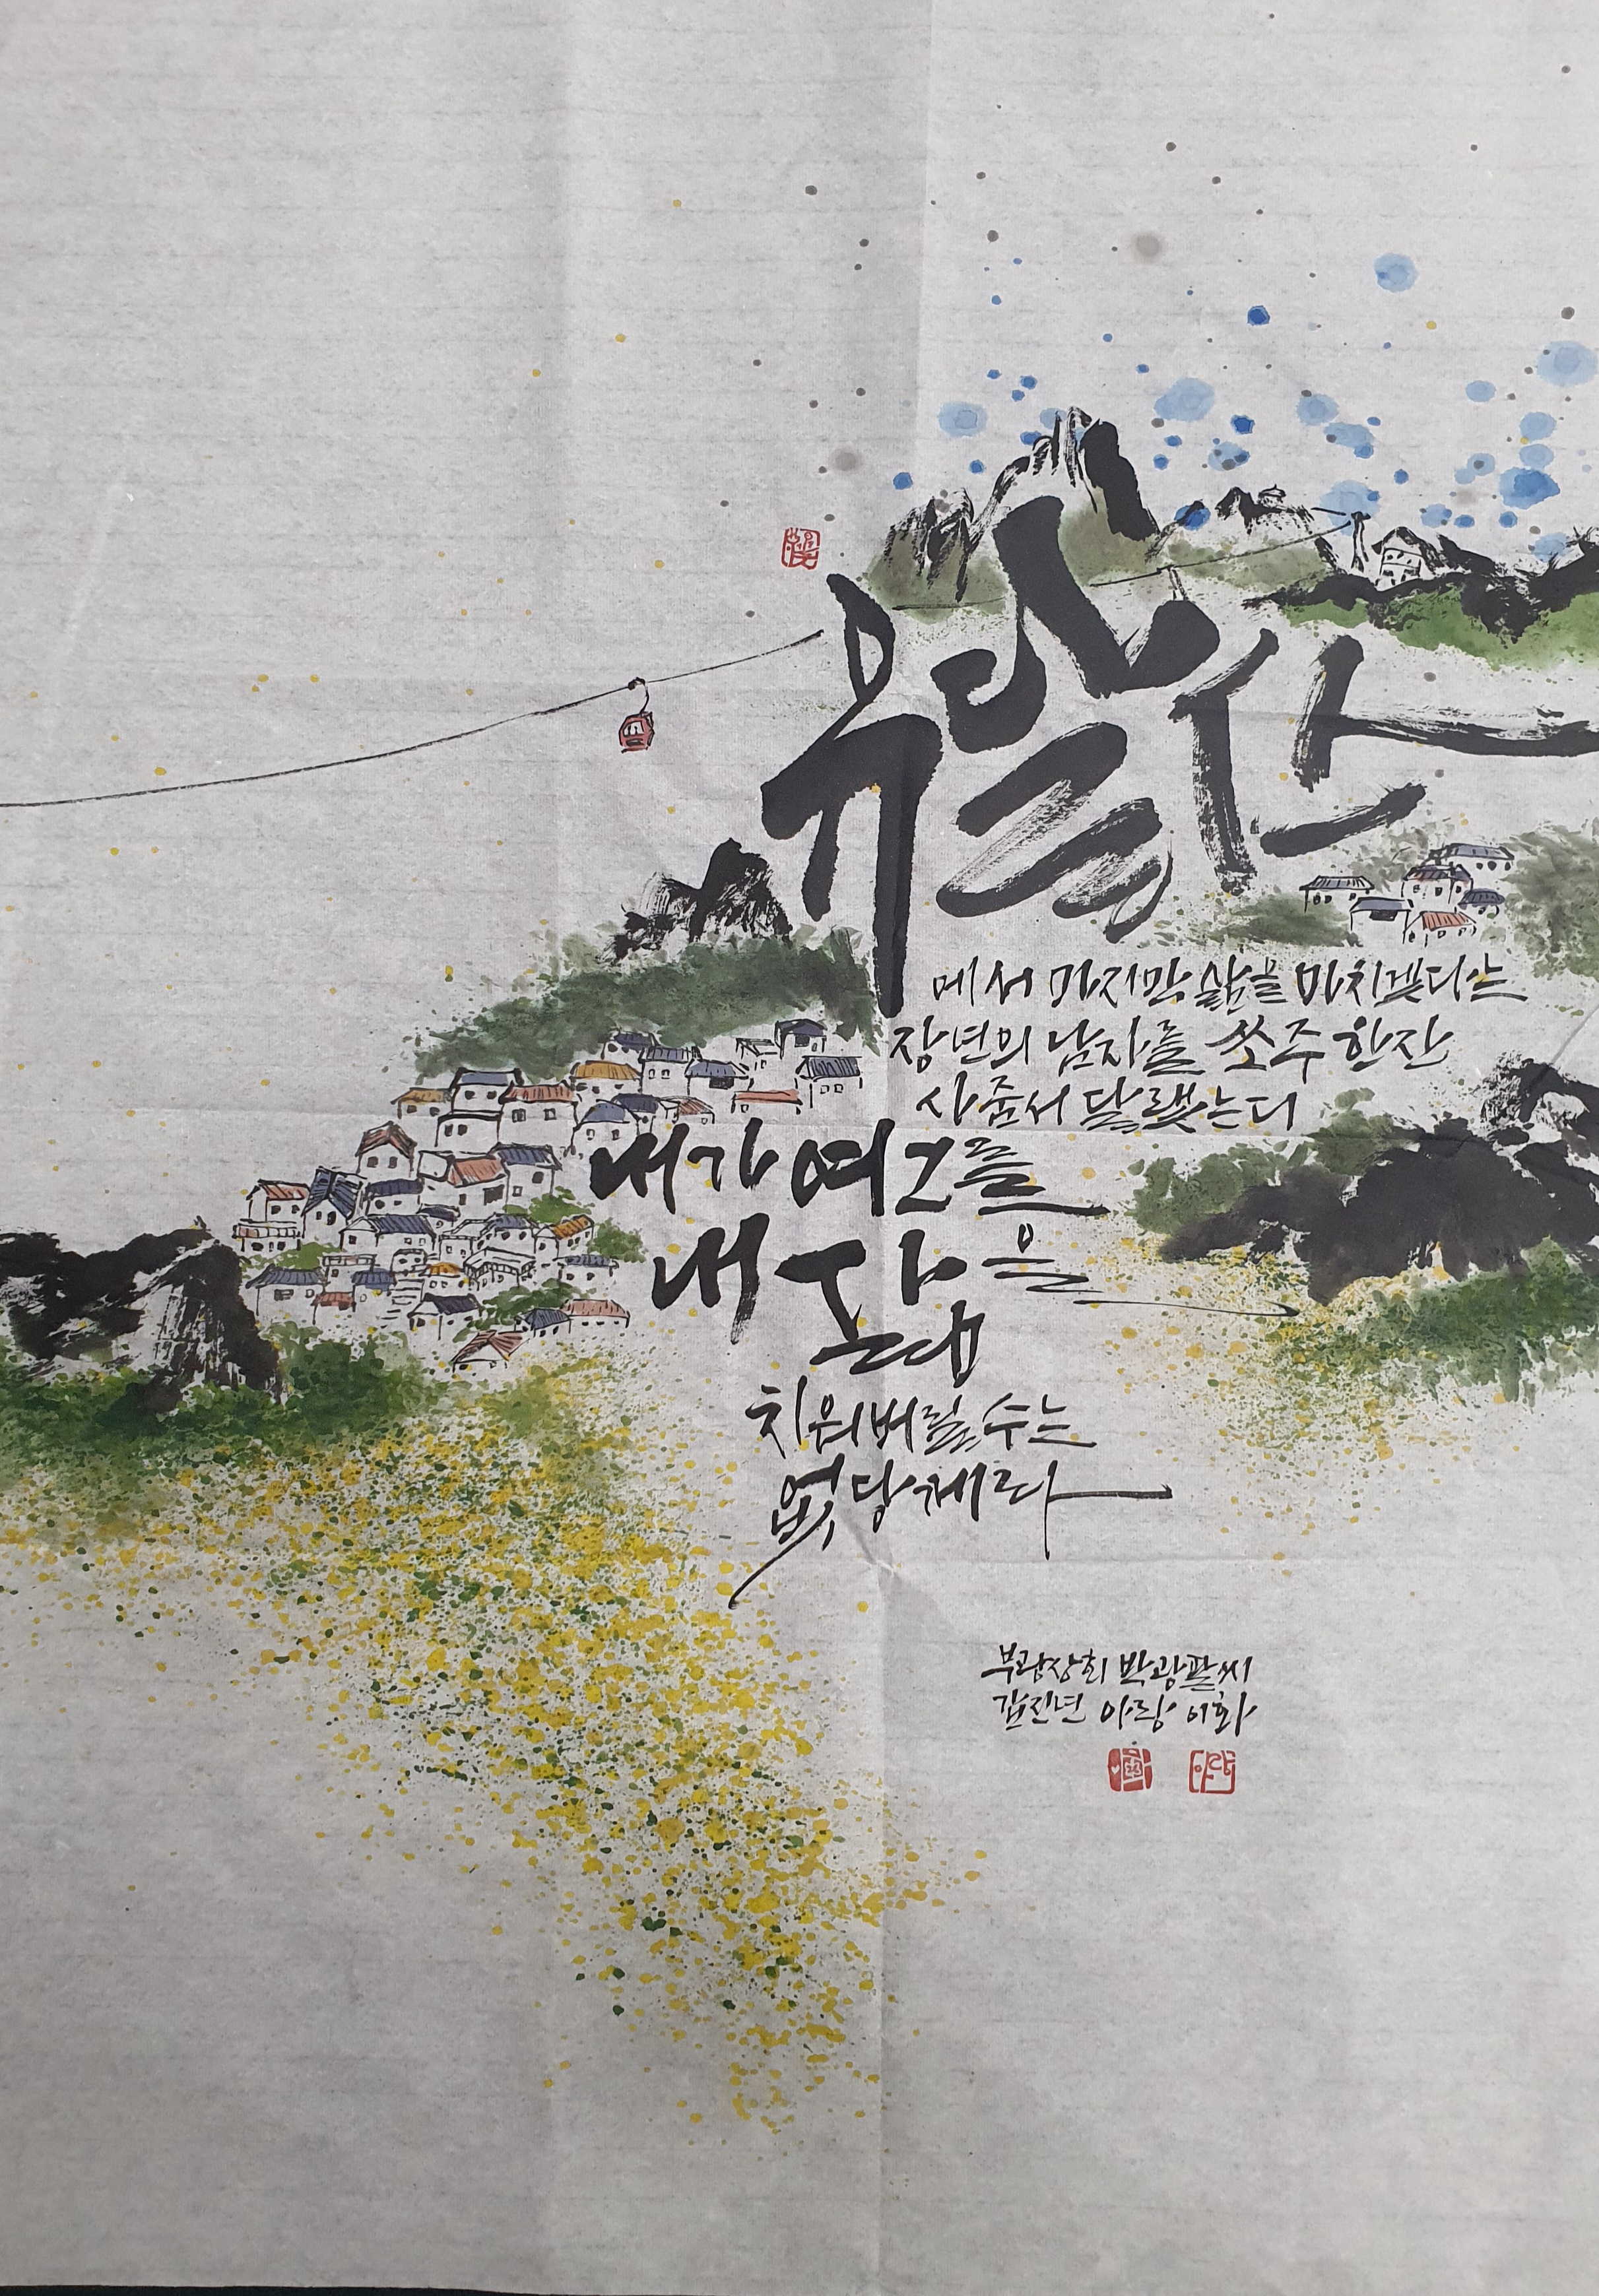 유달산
에서 마지막 삶을 마치겠다는
장년의 남자를 쏘주 한잔
사줌서 달랬는디
내가 여그를
내
치워버릴 수는
없당께라
부광상회 박광팔씨
갑진년 아랑 이화
아랑